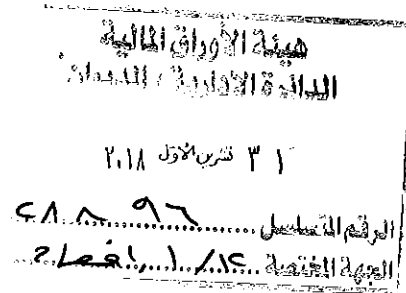 هيئة الأوراق المالية
الدائرة الادارية / الديوان
٣١ تشرين الأول ٢٠١٨
الرقم المتسلسل
الجهة المختصة افصاح